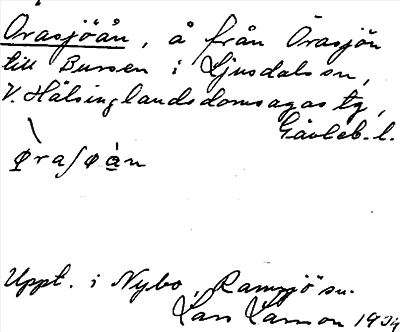 Örasjöån, å från Örasjön
till Bursen i Ljusdals sn,
V. Hälsinglands domsagas tg,
Gävleb. l.
øraʃøàn
Uppt. i Nybo, Ramsjö sn.
Lars Larson